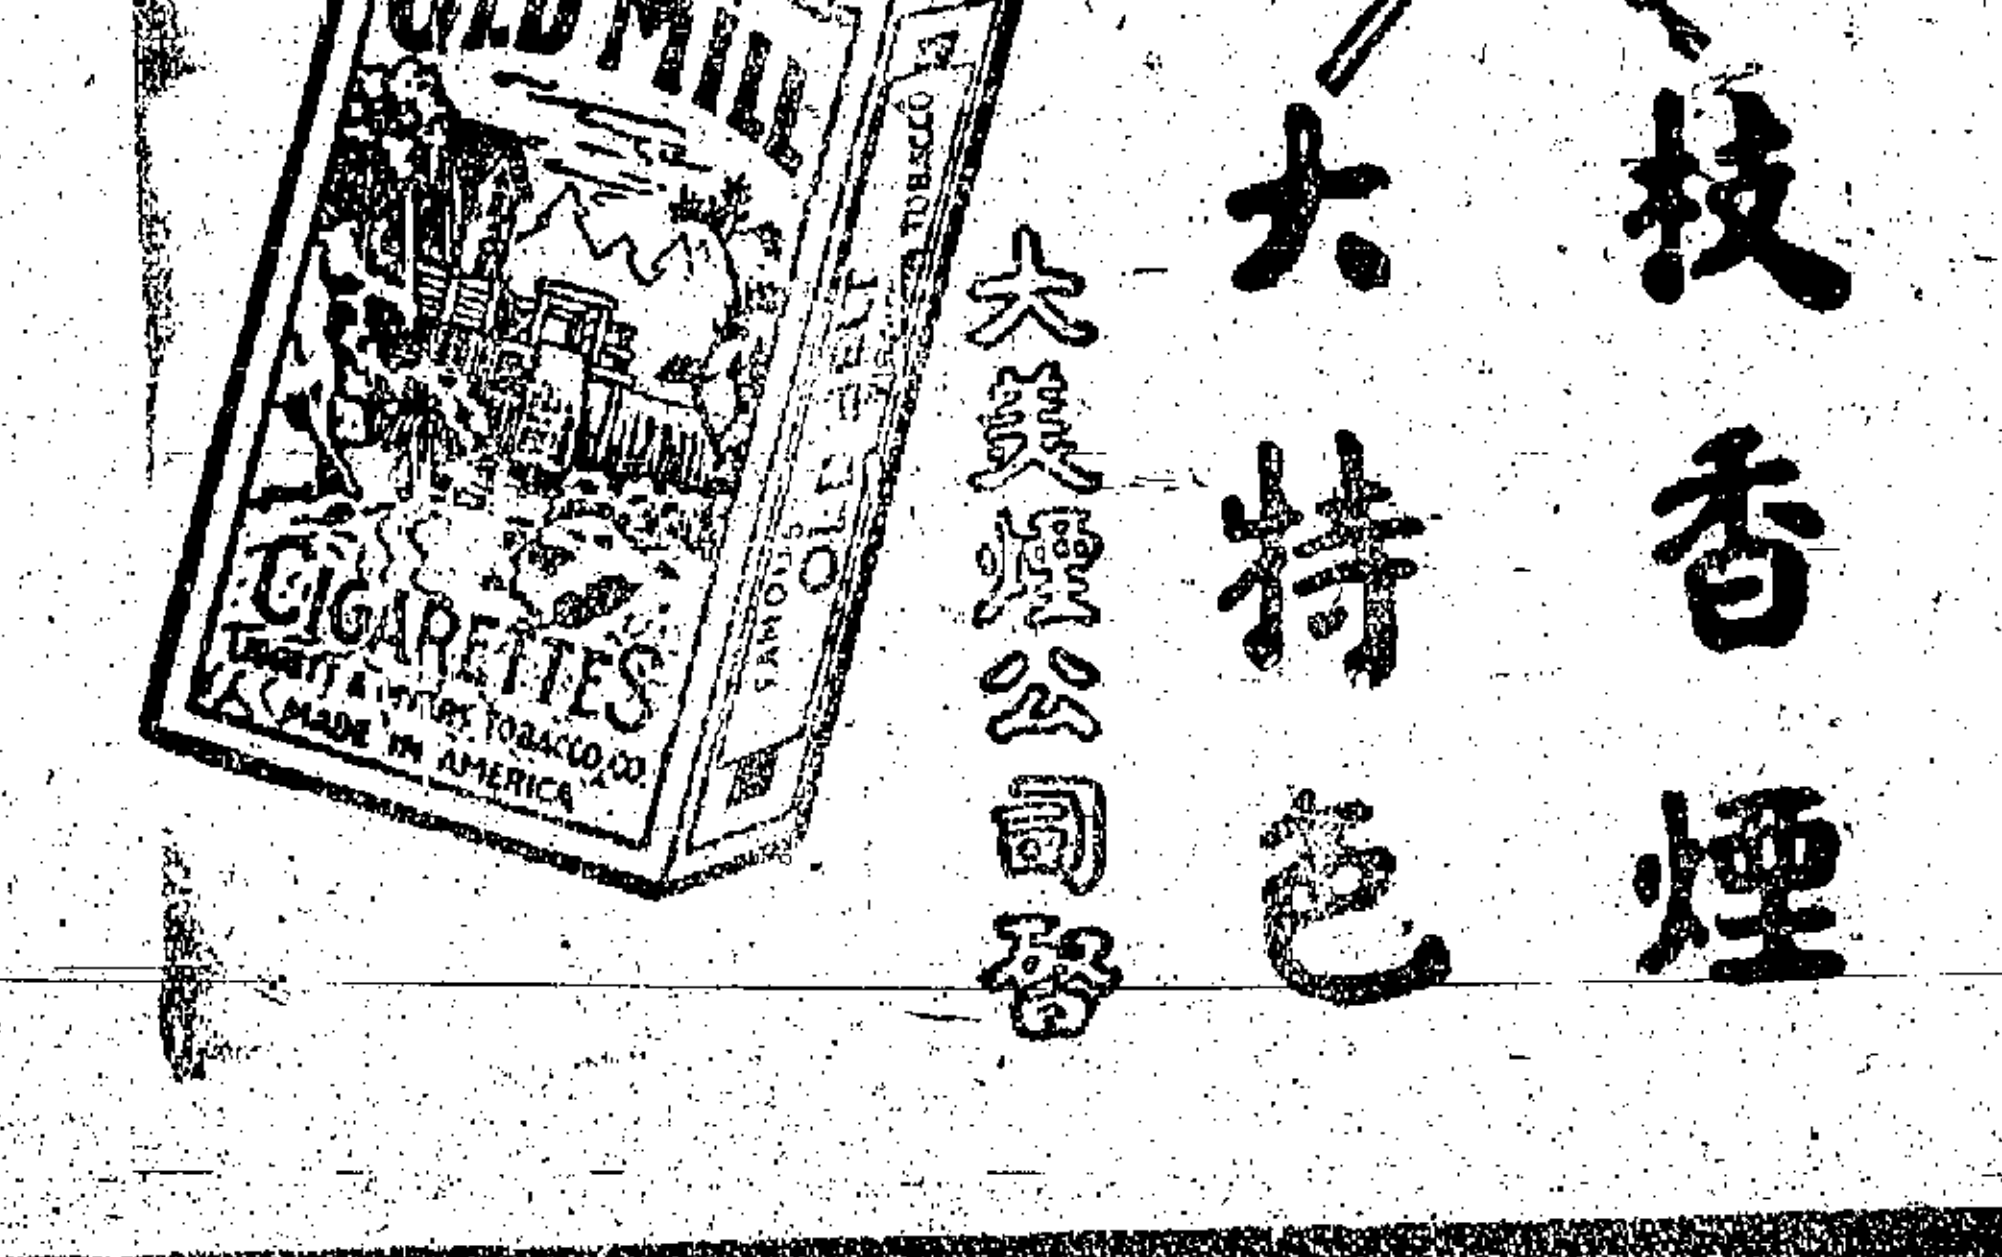 枝香煙
大特色
大美煙公司啓
OLD MILL
CIGARETTES
LIGGETT & MYERS TOBACCO CO.
MADE IN AMERICA
FAMOUS
OLD MILL
TOBACCO